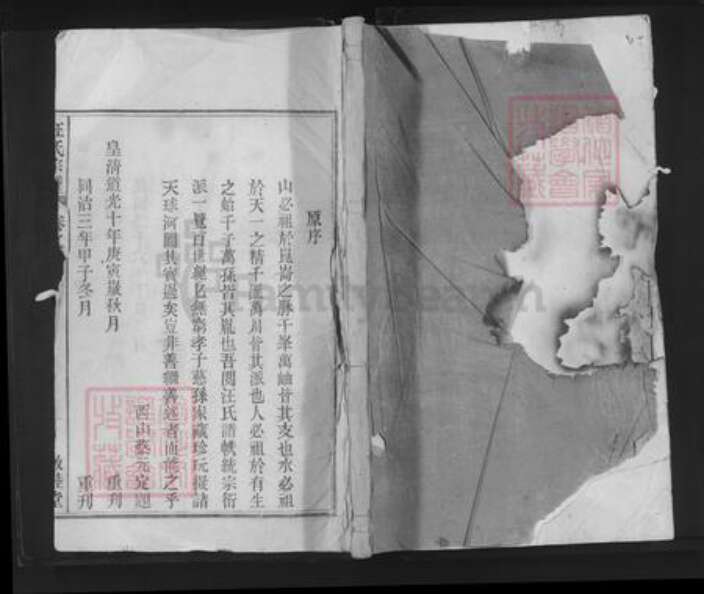 原序
山必祖於崑崙之脉千峯萬岫皆其支也水必祖
於天一之精千派萬川皆其派也人必祖於有生
之始千子萬孫皆其胤也吾閱汪氏譜帙統宗衍
派一覽百世繩繩無窮孝子慈孫家藏珍玩擬諸
天球河圖其寶過矣豈非善繼善述者而能之乎
西山蔡元定題
皇清道光十年庚寅歲秋月 重刊
同治三年甲子冬月 重刊
汪氏宗譜 卷之
敦睦堂
FamilySearch